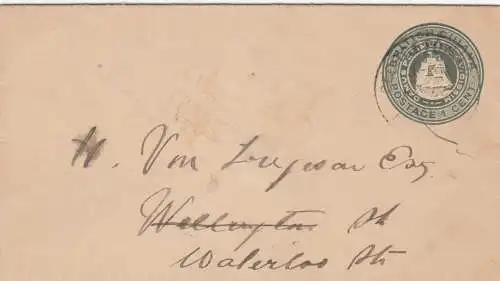 BRITISH GUIANA
POSTAGE 1 CENT
H. Von Esq
Wellington St
Waterloo St